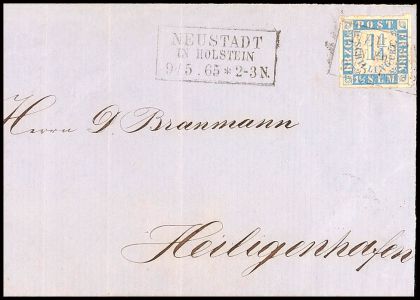 NEUSTADT
IN HOLSTEIN
9/5.65*2-3N.
POST
BRZGL
FRMRK
1¼ S.L.M.
Herrn D. Branmann
Heiligenhafen